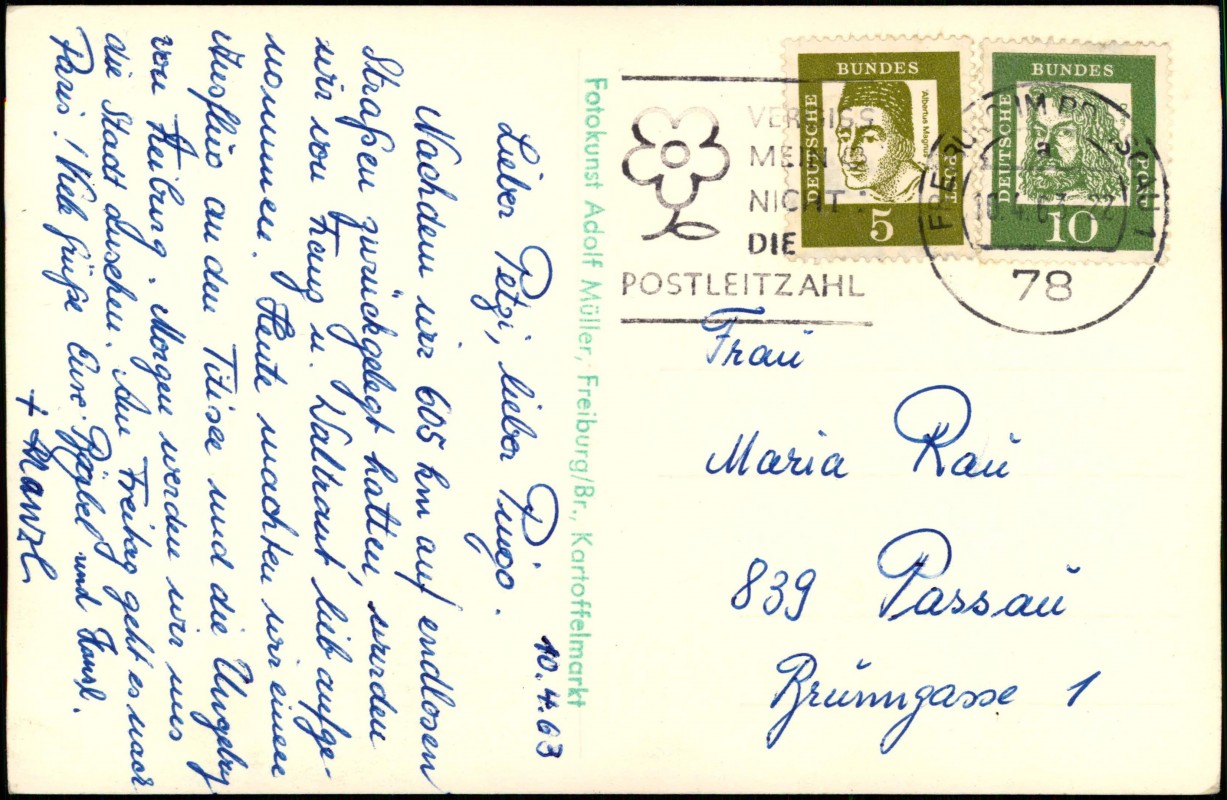 10.4.63
Lieber Petzi, lieber Pingo.
Nachdem wir 605 km auf endlosen
Straßen zurückgelegt hatten, wurden
wir von Franz u. Waltraut lieb aufge-
nommen. Heute machten wir einen
Ausflug an den Titisee und die Umgebung
von Freiburg. Morgen werden wir uns
die Stadt ansehen. Am Freitag geht es nach
Paris! Viele Grüße Eure und Hansl.
+ Manzl
Fotokunst Adolf Müller, Freiburg/Br., Kartoffelmarkt
VERGISS
MEIN
NICHT
DIE
POSTLEITZAHL
DEUTSCHE BUNDESPOST
Albertus Magnus
5
DEUTSCHE BUNDESPOST
10
FREIBURG IM BREISGAU 1
a
10.4.63-22
78
Frau
Maria Rau
839 Passau
Brunngasse 1